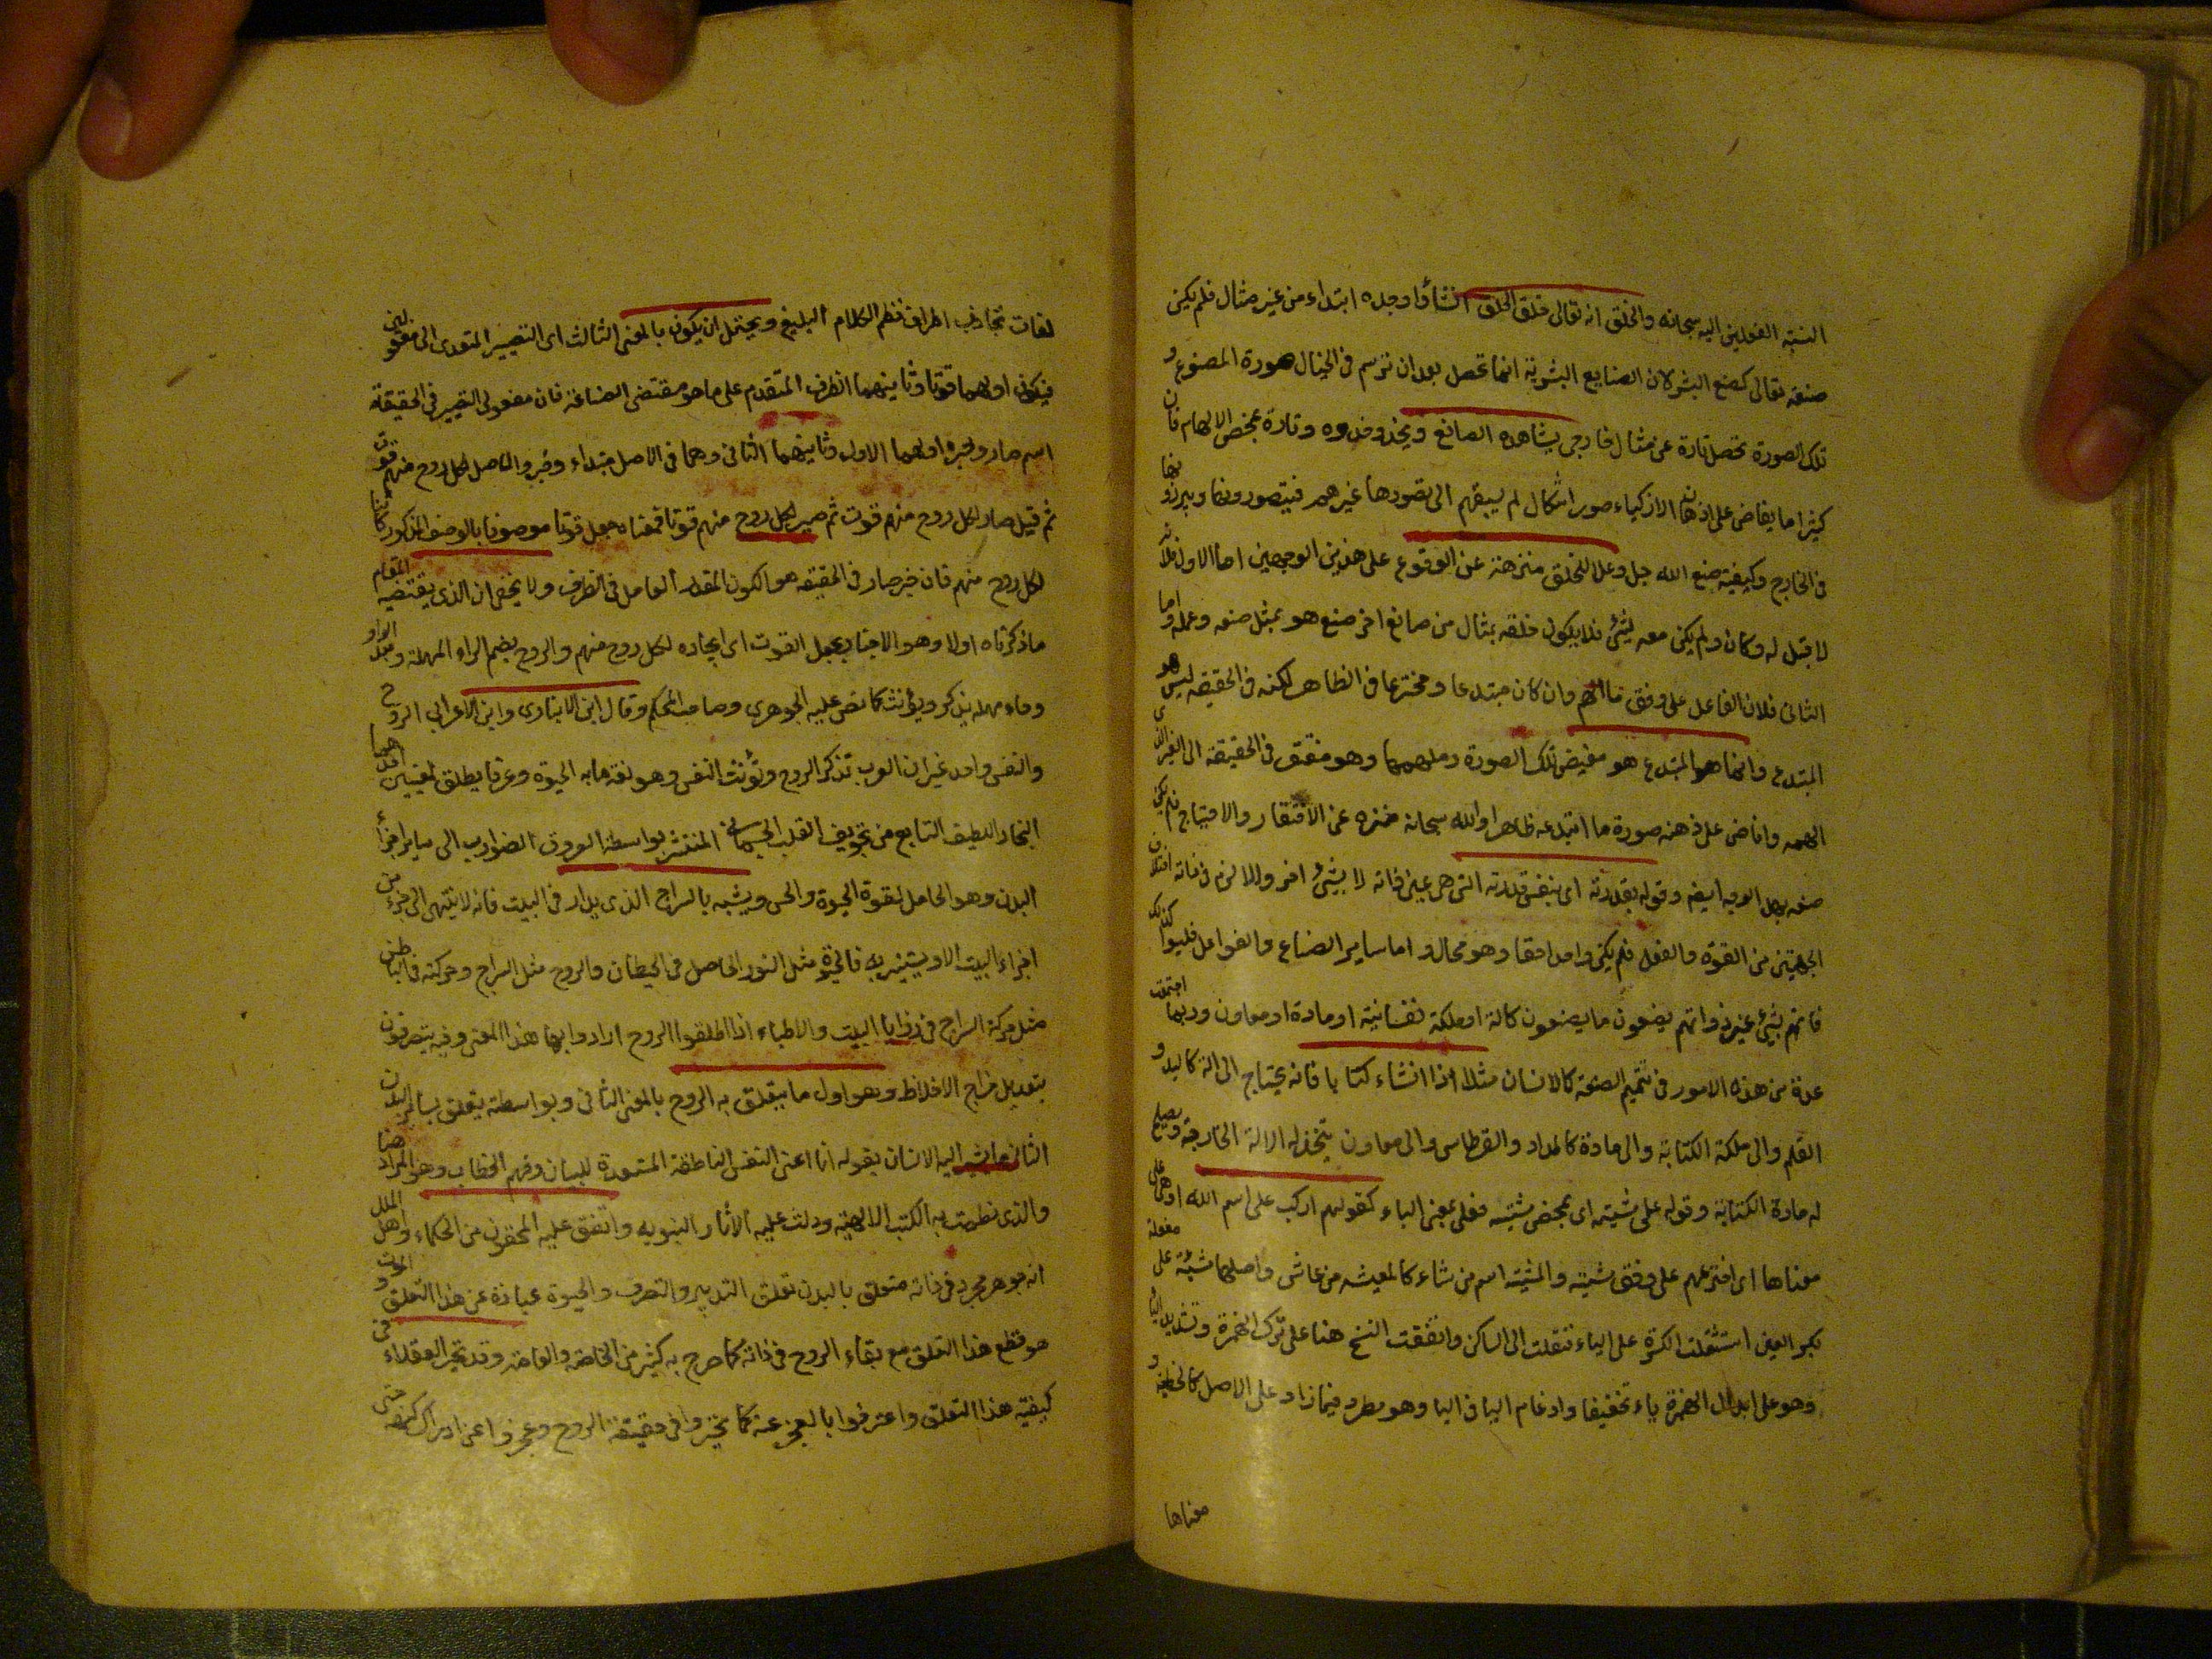 النسبة الفعلين اليه سبحانه والخلق انه تعالى خلق الخلق انشأ واوجده ابتداء من غير مثال فلم يكن
صنعه تعالى كصنع البشر لان الصنايع البشرية انما تحصل بعد ان ترسم في الخيال صورة المصنوع و
تلك الصورة تحصل تارة عن مثال خارجي يشاهده الصانع ويحذو حذوه وتارة بمحض الالهام فان
كثيرا ما يفاض على اذهان الازكياء صور اشكال لم يسبقهم الى تصورها غيرهم فيتصورونها ويبرزونها
في الخارج وكيفية صنع الله جل وعلا للخلق منزهة عن الوقوع على هذين الوجهين اما الاول فلانه
لا قبل له وكان ولم يكن معه شئ فلا يكون خلقه بمثال من صانع اخر صنع هو بمثل صنعه وعمله واما
الثاني فلان الفاعل على وفق ما الهم وان كان مبتدعا ومخترعا في الظاهر لكنه في الحقيقة ليس هو
المبتدع وانما هو المبتدع هو مفيض تلك الصورة وملهمها وهو مفتقر في الحقيقة الى الغير الذى
الهمه وافاض على ذهنه صورة ما ابتدعه ظاهرا والله سبحانه منزه عن الافتقار والاحتياج فلم يكن
صنعه بهذا الوجه ايضا وقوله بقدرته اى بنفس قدرته التى هي عين ذاته لا بشئ اخر والا لزم في ذاته اختلاف
الجهتين من القوة والفعل فلم يكن واحدا حقا وهو محال واما ساير الصناع والفواعل فليسوا كذلك
فانهم بشئ غير ذواتهم يضعون ما يصنعون كآلة او ملكة نفسانية او مادة او معاون وربما اجتمعت
عدة من هذه الامور في تتميم الصنعة كالانسان مثلا اذا انشاء كتابا فانه يحتاج الى الة كاليد و
القلم والى ملكة الكتابة والى مادة كالمداد والقرطاس والى معاون يتخذ له الالة الخارجة ويصلح
له مادة الكتابة وقوله على مشيته اى بمحض مشيته فعلى بمعنى الباء كقولهم اركب على اسم الله او هي على
معناها اى اخترعهم على وفق مشيته والمشية اسم من شاء كالمعيشة من عاش واصلها مشيئة على مفعلة
بكسر العين استثقلت الكسرة على الياء فنقلت الى الساكن واتفقت النسخ هنا على ترك الهمزة وتشديد الياء
وهو على ابدال الهمزة ياء تخفيفا وادغام اليا في اليا وهو مطرد فيما زاد على الاصل كالخطية و
معناها
لغات تجاذب اطراف نظم الكلام البليغ ويحتمل ان يكون بالمعنى الثالث اى التصيير المتعدى الى مفعولين
فيكون اولهما قوتا وثانيهما الظرف المتقدم على ما هو مقتضى الصناعة فان مفعولى التصيير في الحقيقة
اسم صار وخبره اولهما الاول وثانيهما الثاني وهما في الاصل مبتداء وخبر والاصل لكل روح منهم قوت
ثم قيل صار لكل روح منهم قوت ثم صير لكل روح منهم قوتا فمعناه جعل قوتا موصوفا بالوصف المذكور كائنا
لكل روح منهم فان خبر صار في الحقيقة هو الكون المقدر العامل في الظرف ولا يخفى ان الذى يقتضيه المقام
ما ذكرناه اولا وهو الاخبار بجعل القوت اى ايجاده لكل روح منهم والروح بضم الراء المهملة وبعد الواو
وحاء مهملة يذكر ويؤنث كما نص عليه الجوهرى وصاحب المحكم وقال ابن الانبارى وابن الاعرابي الروح
والنفس واحد غير ان العرب تذكر الروح وتؤنث النفس وهو لغة ما به الحيوة وعرفا يطلق لمعنيين احدهما
البخار اللطيف النابع من تجويف القلب الجسماني المنتشر بواسطة العروق الضوارب الى ساير اجزاء
البدن وهو الحامل لقوة الحيوة والحس ويشبه بالسراج الذى يدار في البيت فانه لا ينتهى الى جزء من
اجزاء البيت الا ويستنير به فالحيوة مثل النور الحاصل في الحيطان والروح مثل السراج وحركته في الباطن
مثل حركة السراج في زوايا البيت والاطباء اذا اطلقوا الروح ارادوا بها هذا المعنى وفيه يتصرفون
بتعديل مزاج الاخلاط وهو اول ما يتعلق به الروح بالمعنى الثاني وبواسطته يتعلق بساير البدن
الثاني ما يشير اليه الانسان بقوله انا اعنى النفس الناطقة المستعدة للبيان وفهم الخطاب وهو المراد هنا
والذى نطقت به الكتب الالهية ودلت عليه الاثار النبوية واتفق عليه المحققون من الحكماء واهل الملل
انه جوهر مجرد في ذاته متعلق بالبدن تعلق التدبير والتصرف والحيوة عبارة عن هذا التعلق والموت
هو قطع هذا التعلق مع بقاء الروح في ذاته كما صرح به كثير من الخاصة والعامة وقد تحير العقلاء في
كيفية هذا التعلق واعترفوا بالعجز عنه كما تحيروا في حقيقة الروح وعجزوا عن ادراك كنهه حتى